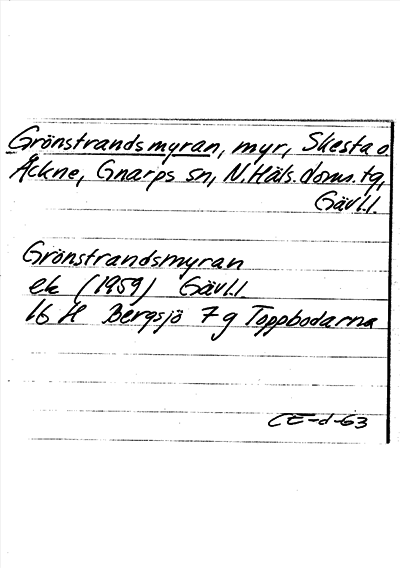 Grönstrandsmyran, myr, Skesta o
Åckne, Gnarps sn, N. Häls. doms. tg,
Gävl.l.
Grönstrandsmyran
ek (1959) Gävl.l.
16 H Bergsjö 7 g Toppbodarna
CE-d-63